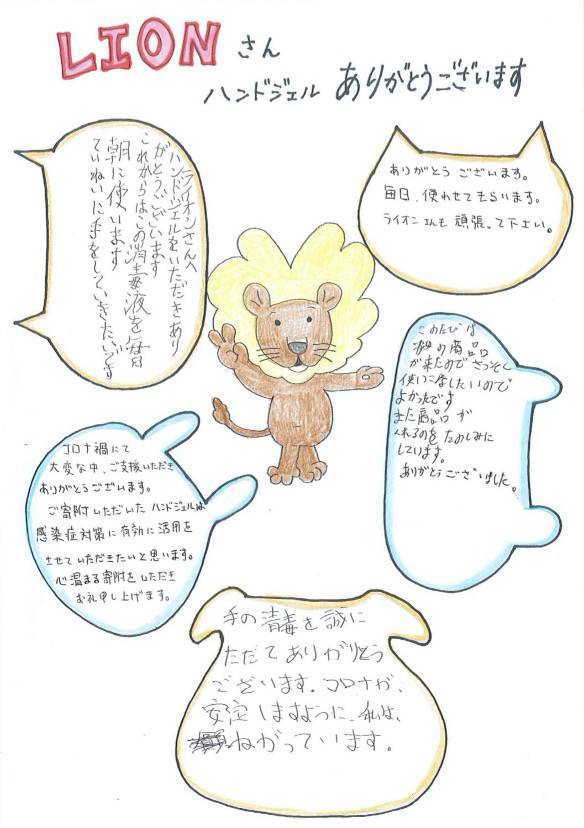 LION さん
ハンドジェル ありがとうございます
ライオンさんへ
ハンドジェルをいただきあり
がとうございます
これからはこの消毒液を毎日
朝に使います
ていねいに手をしていきたいです
ありがとう ございます。
毎日、使わせてもらいます。
ライオンさんも 頑張って下さい。
このたびは
の商品
が来たので さっそく
使いこなしたいので
よかったです
また商品が
くれるのを たのしみに
しています。
ありがとう ございました。
コロナ禍にて
大変な中、ご支援いただき
ありがとうございます。
ご寄附いただいた ハンドジェルは
感染症対策に有効に活用を
させていただきたいと思います。
心温まる寄附をいただき
お礼申し上げます。
手の消毒を誠に
ただてありがりとう
ございます。コロナが、
安定しますように、私は、
ねがっています。